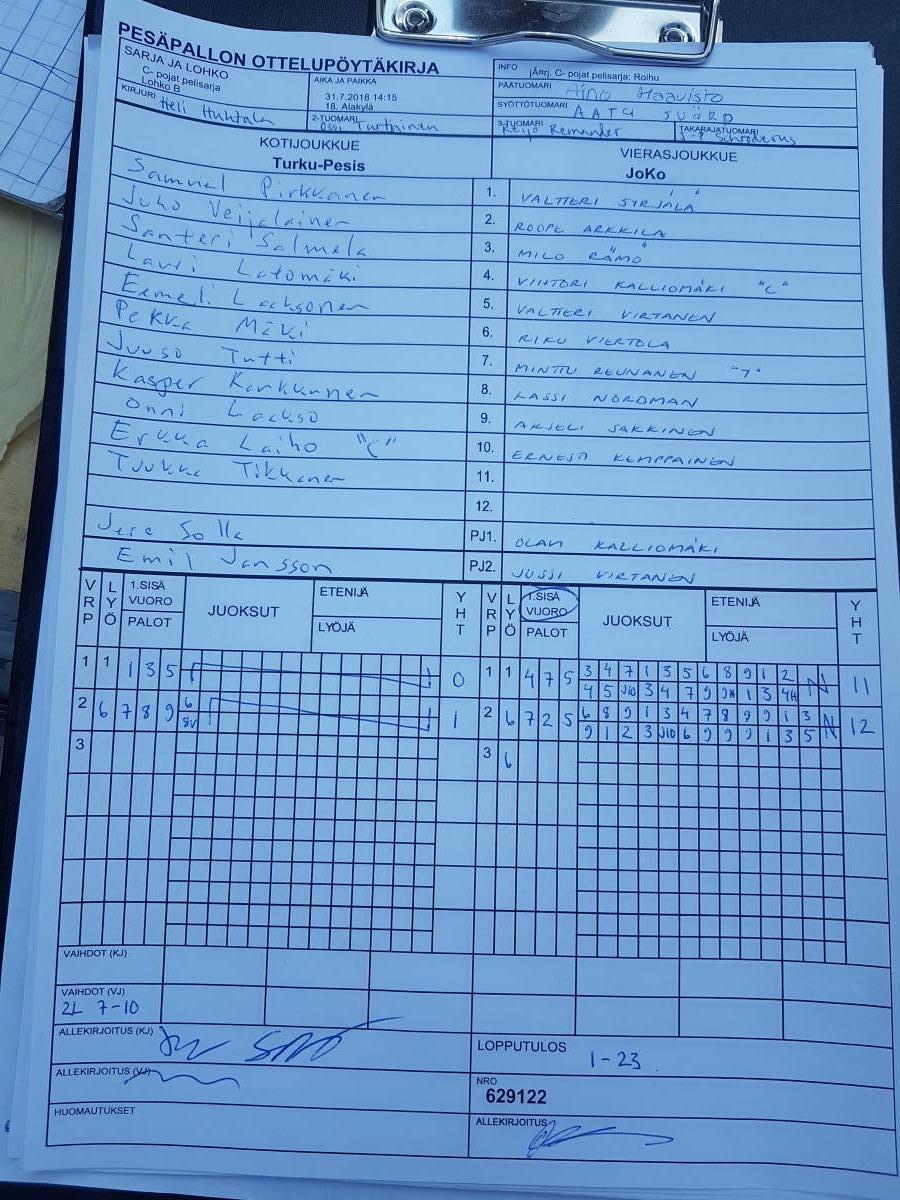 PESÄPALLON OTTELUPÖYTÄKIRJA
SARJA JA LOHKO
C- pojat pelisarja
Lohko B
KIRJURI Heli Huhtala
AIKA JA PAIKKA
31.7.2018 14:15
18. Alakylä
2-TUOMARI
INFO jÃ¤rj. C- pojat pelisarja: Roihu
PÄÄTUOMARI Aino Haavisto
SYÖTTÖTUOMARI AATU SVÄRD
3-TUOMARI Reijo Remander
TAKARAJATUOMARI J-P Schroderus
KOTIJOUKKUE
Turku-Pesis
VIERASJOUKKUE
JoKo
Samuel Pirkkanen 1. VALTTERI SYRJÄLÄ
Juho Veijalainen 2. ROOPE ARKKILA
Santeri Salmela 3. MILO RÄMÖ
Lauri Latomäki 4. VIHTORI KALLIOMÄKI "C"
Eemeli Laaksonen 5. VALTTERI VIRTANEN
Pekka Mäki 6. RIKU VIERTOLA
Juuso Tutti 7. MINTTU REUNANEN "7"
Kasper Karkkunen 8. LASSI NORDMAN
Onni Laakso 9. AKSELI SAKKINEN
Erkka Laiho "C" 10. ERNESTI KEMPPAINEN
Tuukka Tikkanen 11.
12.
Jere Solla PJ1. OLAVI KALLIOMÄKI
Emil Jansson PJ2. JUSSI VIRTANEN
VRP LYÖ 1.SISÄ VUORO PALOT JUOKSUT ETENIJÄ LYÖJÄ YHT VRP LYÖ 1.SISÄ VUORO PALOT JUOKSUT ETENIJÄ LYÖJÄ YHT
1 1 1 3 5 0 1 1 4 7 5 3 4 7 1 3 5 6 8 9 1 2 11
4 5 J10 3 4 7 9 1 3
2 6 7 8 9 6 1 2 6 7 2 5 6 8 9 1 3 4 7 8 9 9 1 3 N 12
8V 9 1 2 3 J10 6 9 9 9 1 3 5
3 3 6
VAIHDOT (KJ)
VAIHDOT (VJ)
2L 7-10
ALLEKIRJOITUS (KJ)
LOPPUTULOS 1-23
ALLEKIRJOITUS (VJ)
NRO
629122
HUOMAUTUKSET
ALLEKIRJOITUS